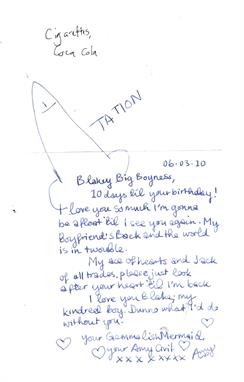 Cigarettes,
Coca Cola
TATION
06-03-10
Blakey Big Boyness,
10 days til your birthday!
I love you so much I'm gonna
be afloat 'til I see you again. My
Boyfriend's Back and the world
is in trouble.
My ace of hearts and Jack
of all trades, please just look
after your heart 'til I'm back
I love you Blake, my
kindred boy. Dunno what I'd do
without you.
your Gemmelish Mermaid,
your Amy Civil
x x x x x x x x